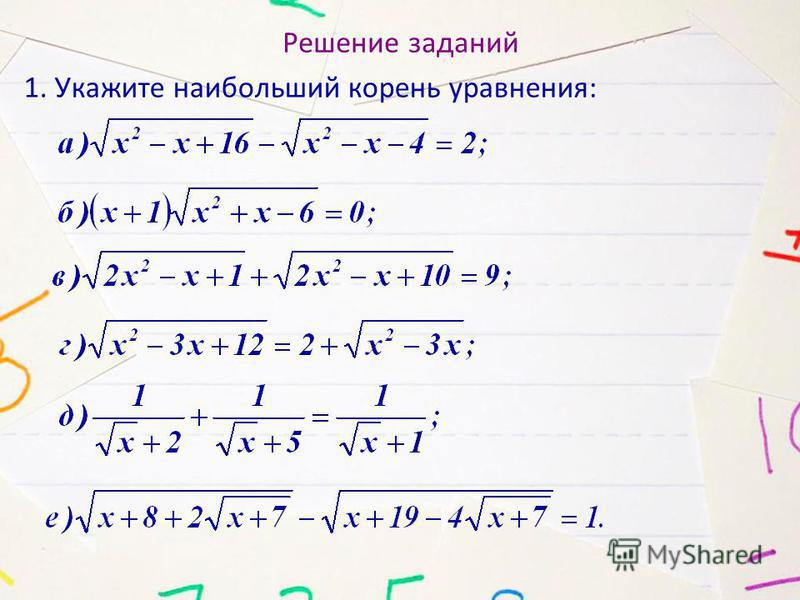 Решение заданий
1. Укажите наибольший корень уравнения:
а) √(x² − x + 16) − √(x² − x − 4) = 2;
б) (x + 1)√(x² + x − 6) = 0;
в) √(2x² − x + 1) + √(2x² − x + 10) = 9;
г) √(x² − 3x + 12) = 2 + √(x² − 3x);
д) 1/(√x + 2) + 1/(√x + 5) = 1/(√x + 1);
е) √(x + 8 + 2√(x + 7)) − √(x + 19 − 4√(x + 7)) = 1.
MyShared